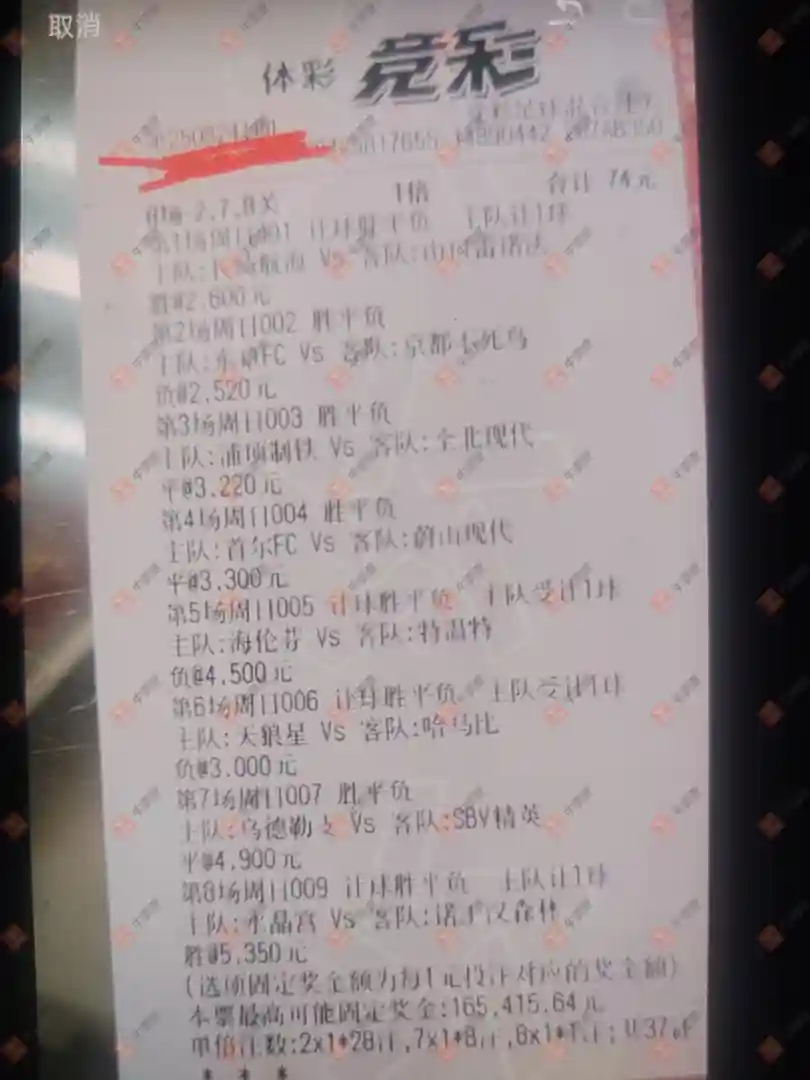 取消
体彩 竞彩
8场-2,7,8关 1倍 合计 74元
第1场周日001 让球胜平负 主队让1球
主队:长崎航海 Vs 客队:山形
胜@2.600元
第2场周日002 胜平负
主队:东京FC Vs 客队:京都不死鸟
负@2.520元
第3场周日003 胜平负
主队:浦项制铁 Vs 客队:全北现代
平@3.220元
第4场周日004 胜平负
主队:首尔FC Vs 客队:蔚山现代
平@3.300元
第5场周日005 让球胜平负 主队受让1球
主队:海伦芬 Vs 客队:特温特
负@4.500元
第6场周日006 让球胜平负 主队受让1球
主队:天狼星 Vs 客队:哈马比
负@3.000元
第7场周日007 胜平负
主队:乌德勒支 Vs 客队:SBV精英
平@4.900元
第8场周日009 让球胜平负 主队让1球
主队:水晶宫 Vs 客队:诺丁汉森林
胜@5.350元
(选项固定奖金额为每1元投注对应的奖金额)
本票最高可能固定奖金:165,415.64元
单倍注数:2x1*28注,7x1*8注,8x1*1注;共37注
* * *